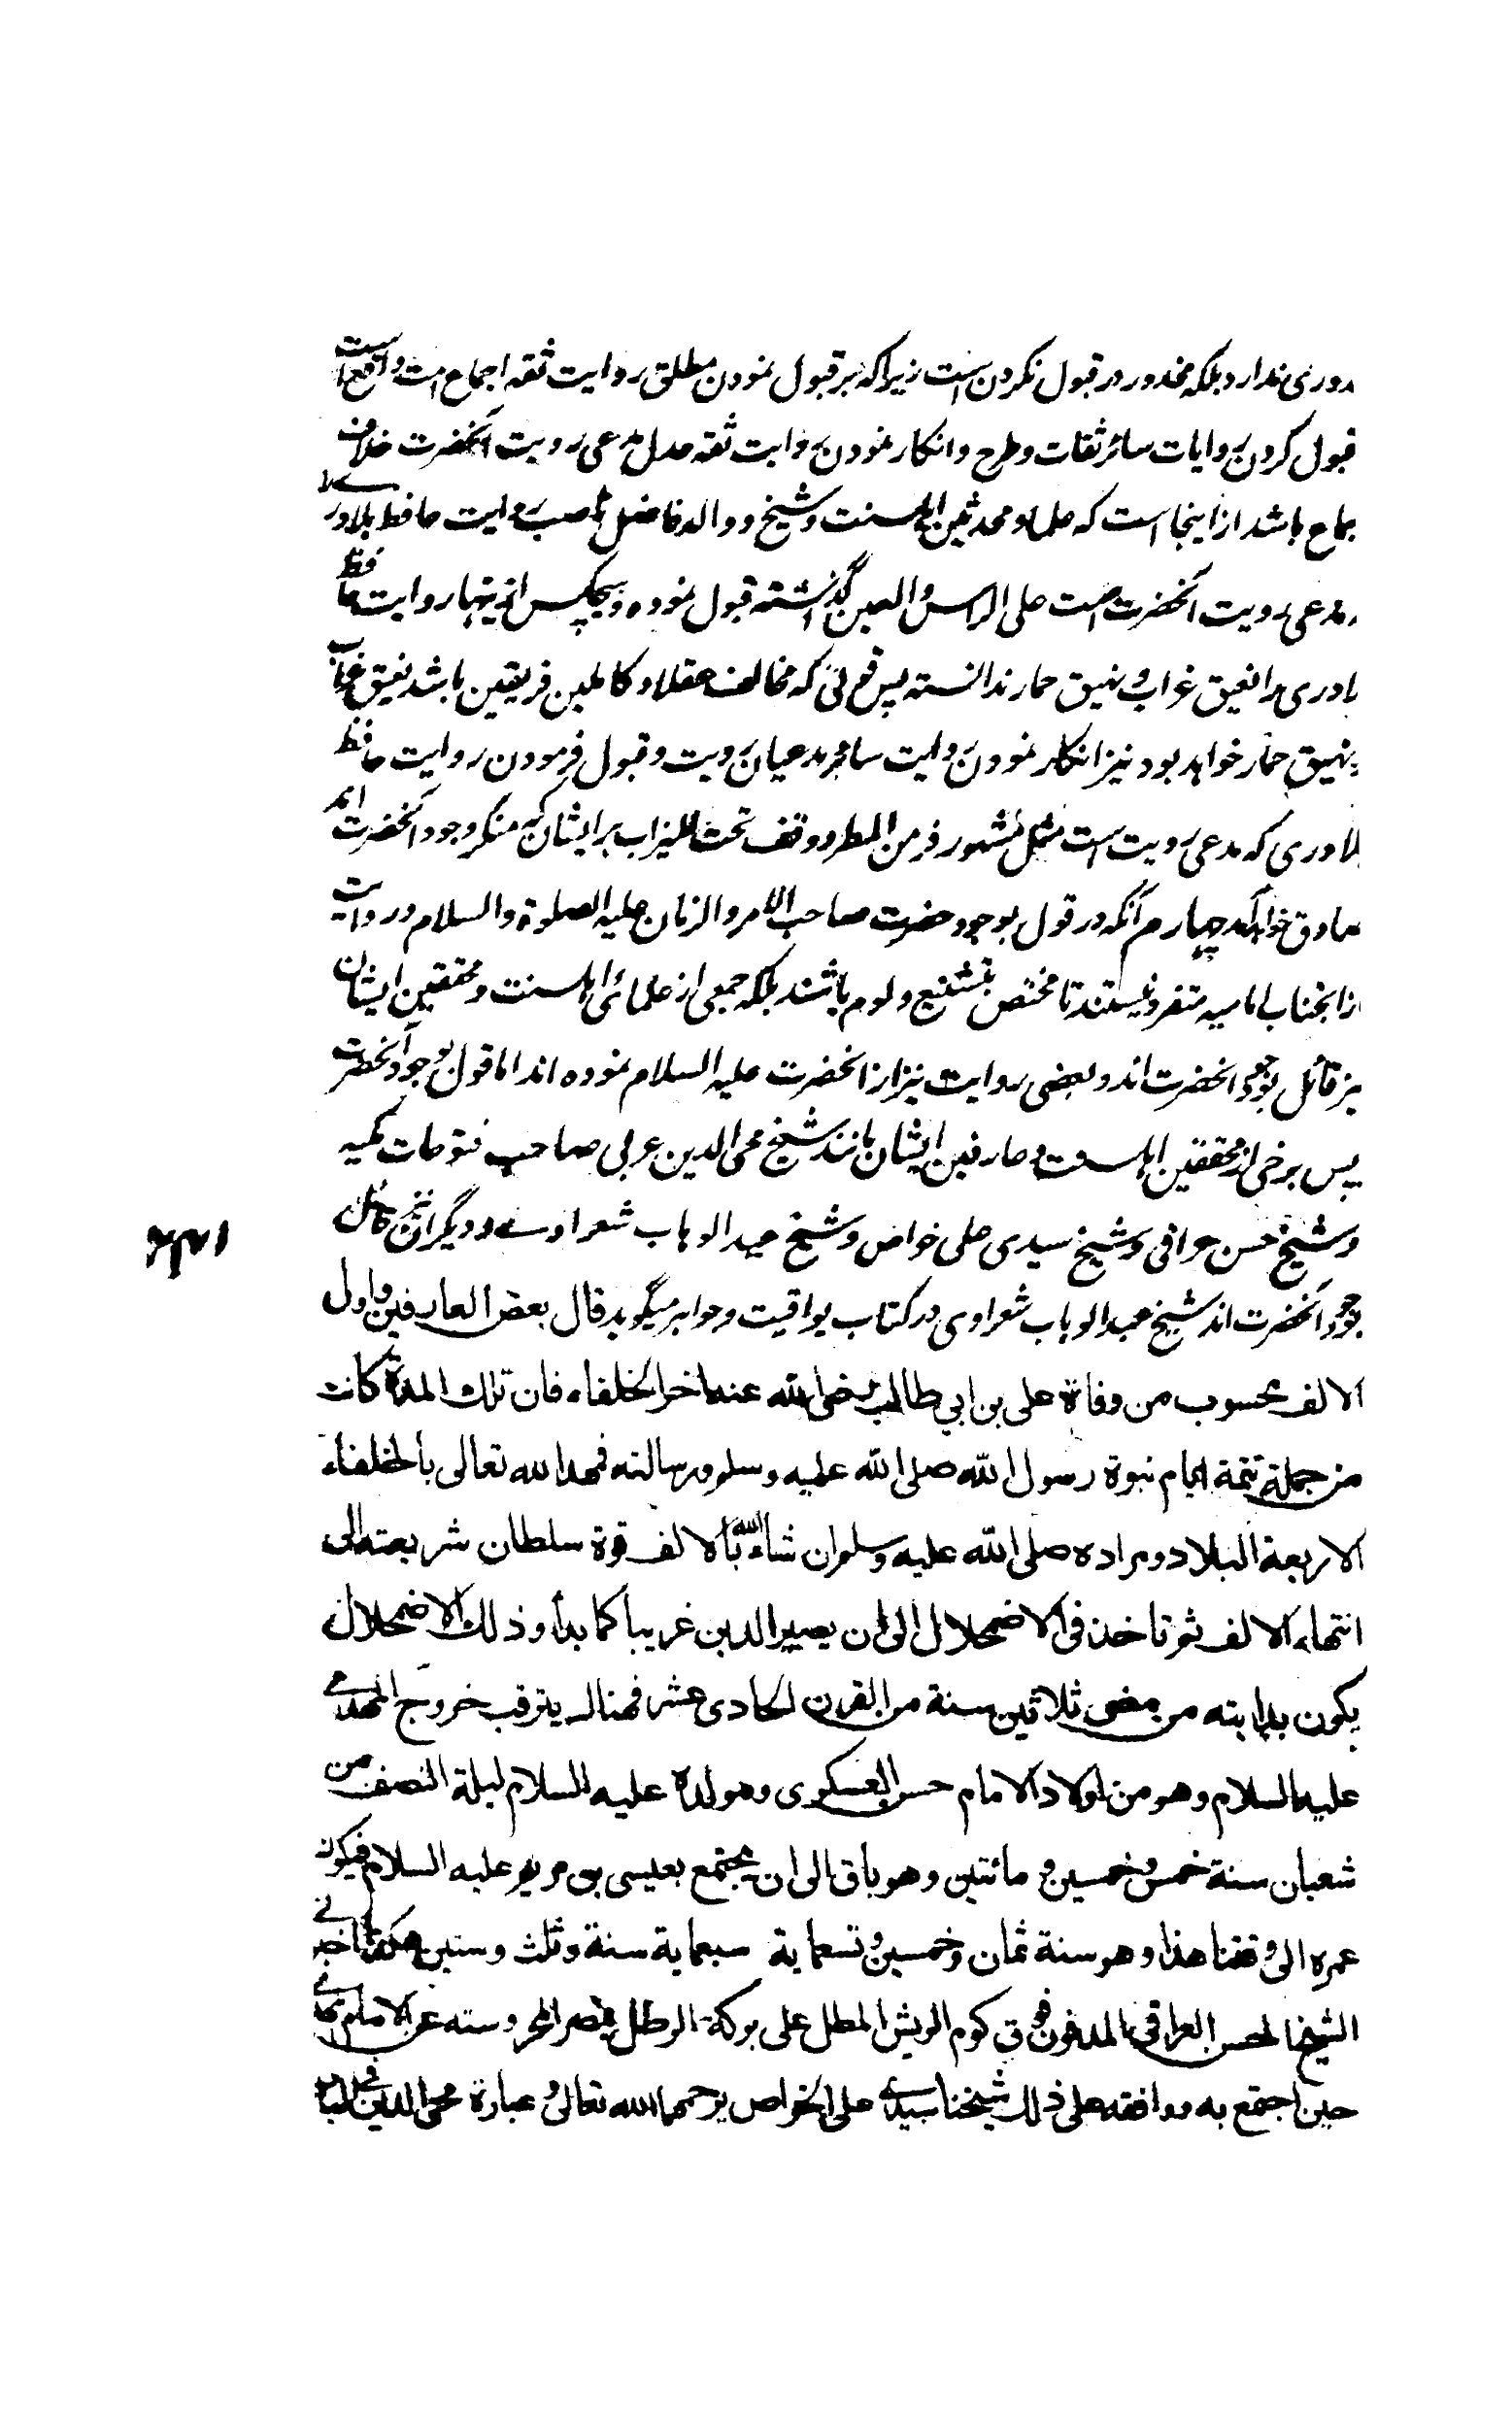 دوری ندارد بلکه محذور در قبول نکردن است زیرا که بر قبول نمودن مطلق روایت ثقه اجماع امت واقع است
قبول کردن روایات سائر ثقات و طرح و انکار نمودن روایت ثقه عدل مدعی رویت آنحضرت خلاف
جماع باشد از اینجا است که علما و محدثین اهلسنت و شیخ و والد فاضل ناصب روایت حافظ بلادری
مدعی رویت آنحضرت است علی الراس و العین گذاشته قبول نموده و هیچکس از ینها روایت حافظ
لادری را نعیق غراب و نهیق حمار ندانسته پس قولی که مخالف عقلا و کاملین فریقین باشد نعیق غراب
نهیق حمار خواهد بود نیز انکار نمودن روایت سائر مدعیان رویت و قبول فرمودن روایت حافظ
لادری که مدعی رویت است مثل مشهور فر من المطر و وقف تحت المیزاب بر ایشان که منکر وجود آنحضرت اند
صادق خواهد آمد چهارم آنکه در قول بوجود حضرت صاحب الامر و الزمان علیه الصلوة و السلام و روایت
از آنجناب امامیه متفرد نیستند تا مختص بتشنیع و لوم باشند بلکه جمعی از علمائی اهلسنت و محققین ایشان
نیز قائل بوجود آنحضرت اند و بعضی روایت نیز از آنحضرت علیه السلام نموده اند اما قول بوجود آنحضرت
پس برخی از محققین اهلسنت و عارفین ایشان مانند شیخ محی الدین عربی صاحب فتوحات مکیه
و شیخ حسن عراقی و شیخ سیدی علی خواص و شیخ عبد الوهاب شعراوی و دیگران نیز قائل
بوجود آنحضرت اند شیخ عبد الوهاب شعراوی در کتاب یواقیت و جواهر میگوید قال بعض العارفین و اول
الالف محسوب من وفاة علی بن ابی طالب رضی الله عنه اخر الخلفاء فان تلك المدة کانت
من جملة تتمة ایام نبوة رسول الله صلی الله علیه وسلم ورسالته فمهد الله تعالی بالخلفاء
الاربعة البلاد ومراده صلی الله علیه وسلم ان شاء الله بالالف قوة سلطان شریعته الی
انتهاء الالف ثم تاخذ فی الاضمحلال الی ان یصیر الدین غریبا کما بدأ وذلك الاضمحلال
یکون بدایته من مضی ثلاثین سنة من القرن الحادی عشر فهناك یترقب خروج المهدی
علیه السلام وهو من اولاد الامام حسن العسکری ومولده علیه السلام لیلة النصف من
شعبان سنة خمس وخمسین و مائتین وهو باق الی ان یجتمع بعیسی بن مریم علیه السلام فیکون
عمره الی وقتنا هذا وهو سنة ثمان وخمسین وتسعمایة سبعمایة سنة وثلث وستین هکذا اخبرنی
الشیخ الحسن العراقی المدفون فوق کوم الریش المطل علی برکة الرطل بمصر المحروسته عن الامام
حین اجتمع به ووافقه علی ذلك شیخنا سیدی علی الخواص یرحمهما الله تعالی و عبارة محی الدین فی الباب